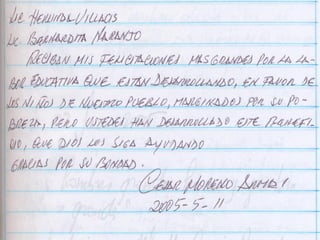 Lic Herlinda Villacis
Lic Bernardita Naranjo
Reciban mis felicitaciones mas grandes por la la-
bor educativa que estan desarrollando, en favor de
los niños de nuestro pueblo, marginados por su po-
breza, pero ustedes han desarrollado este
que Dios los siga ayudando
gracias por su bondad.
Cesar Moreno
2005-5-11